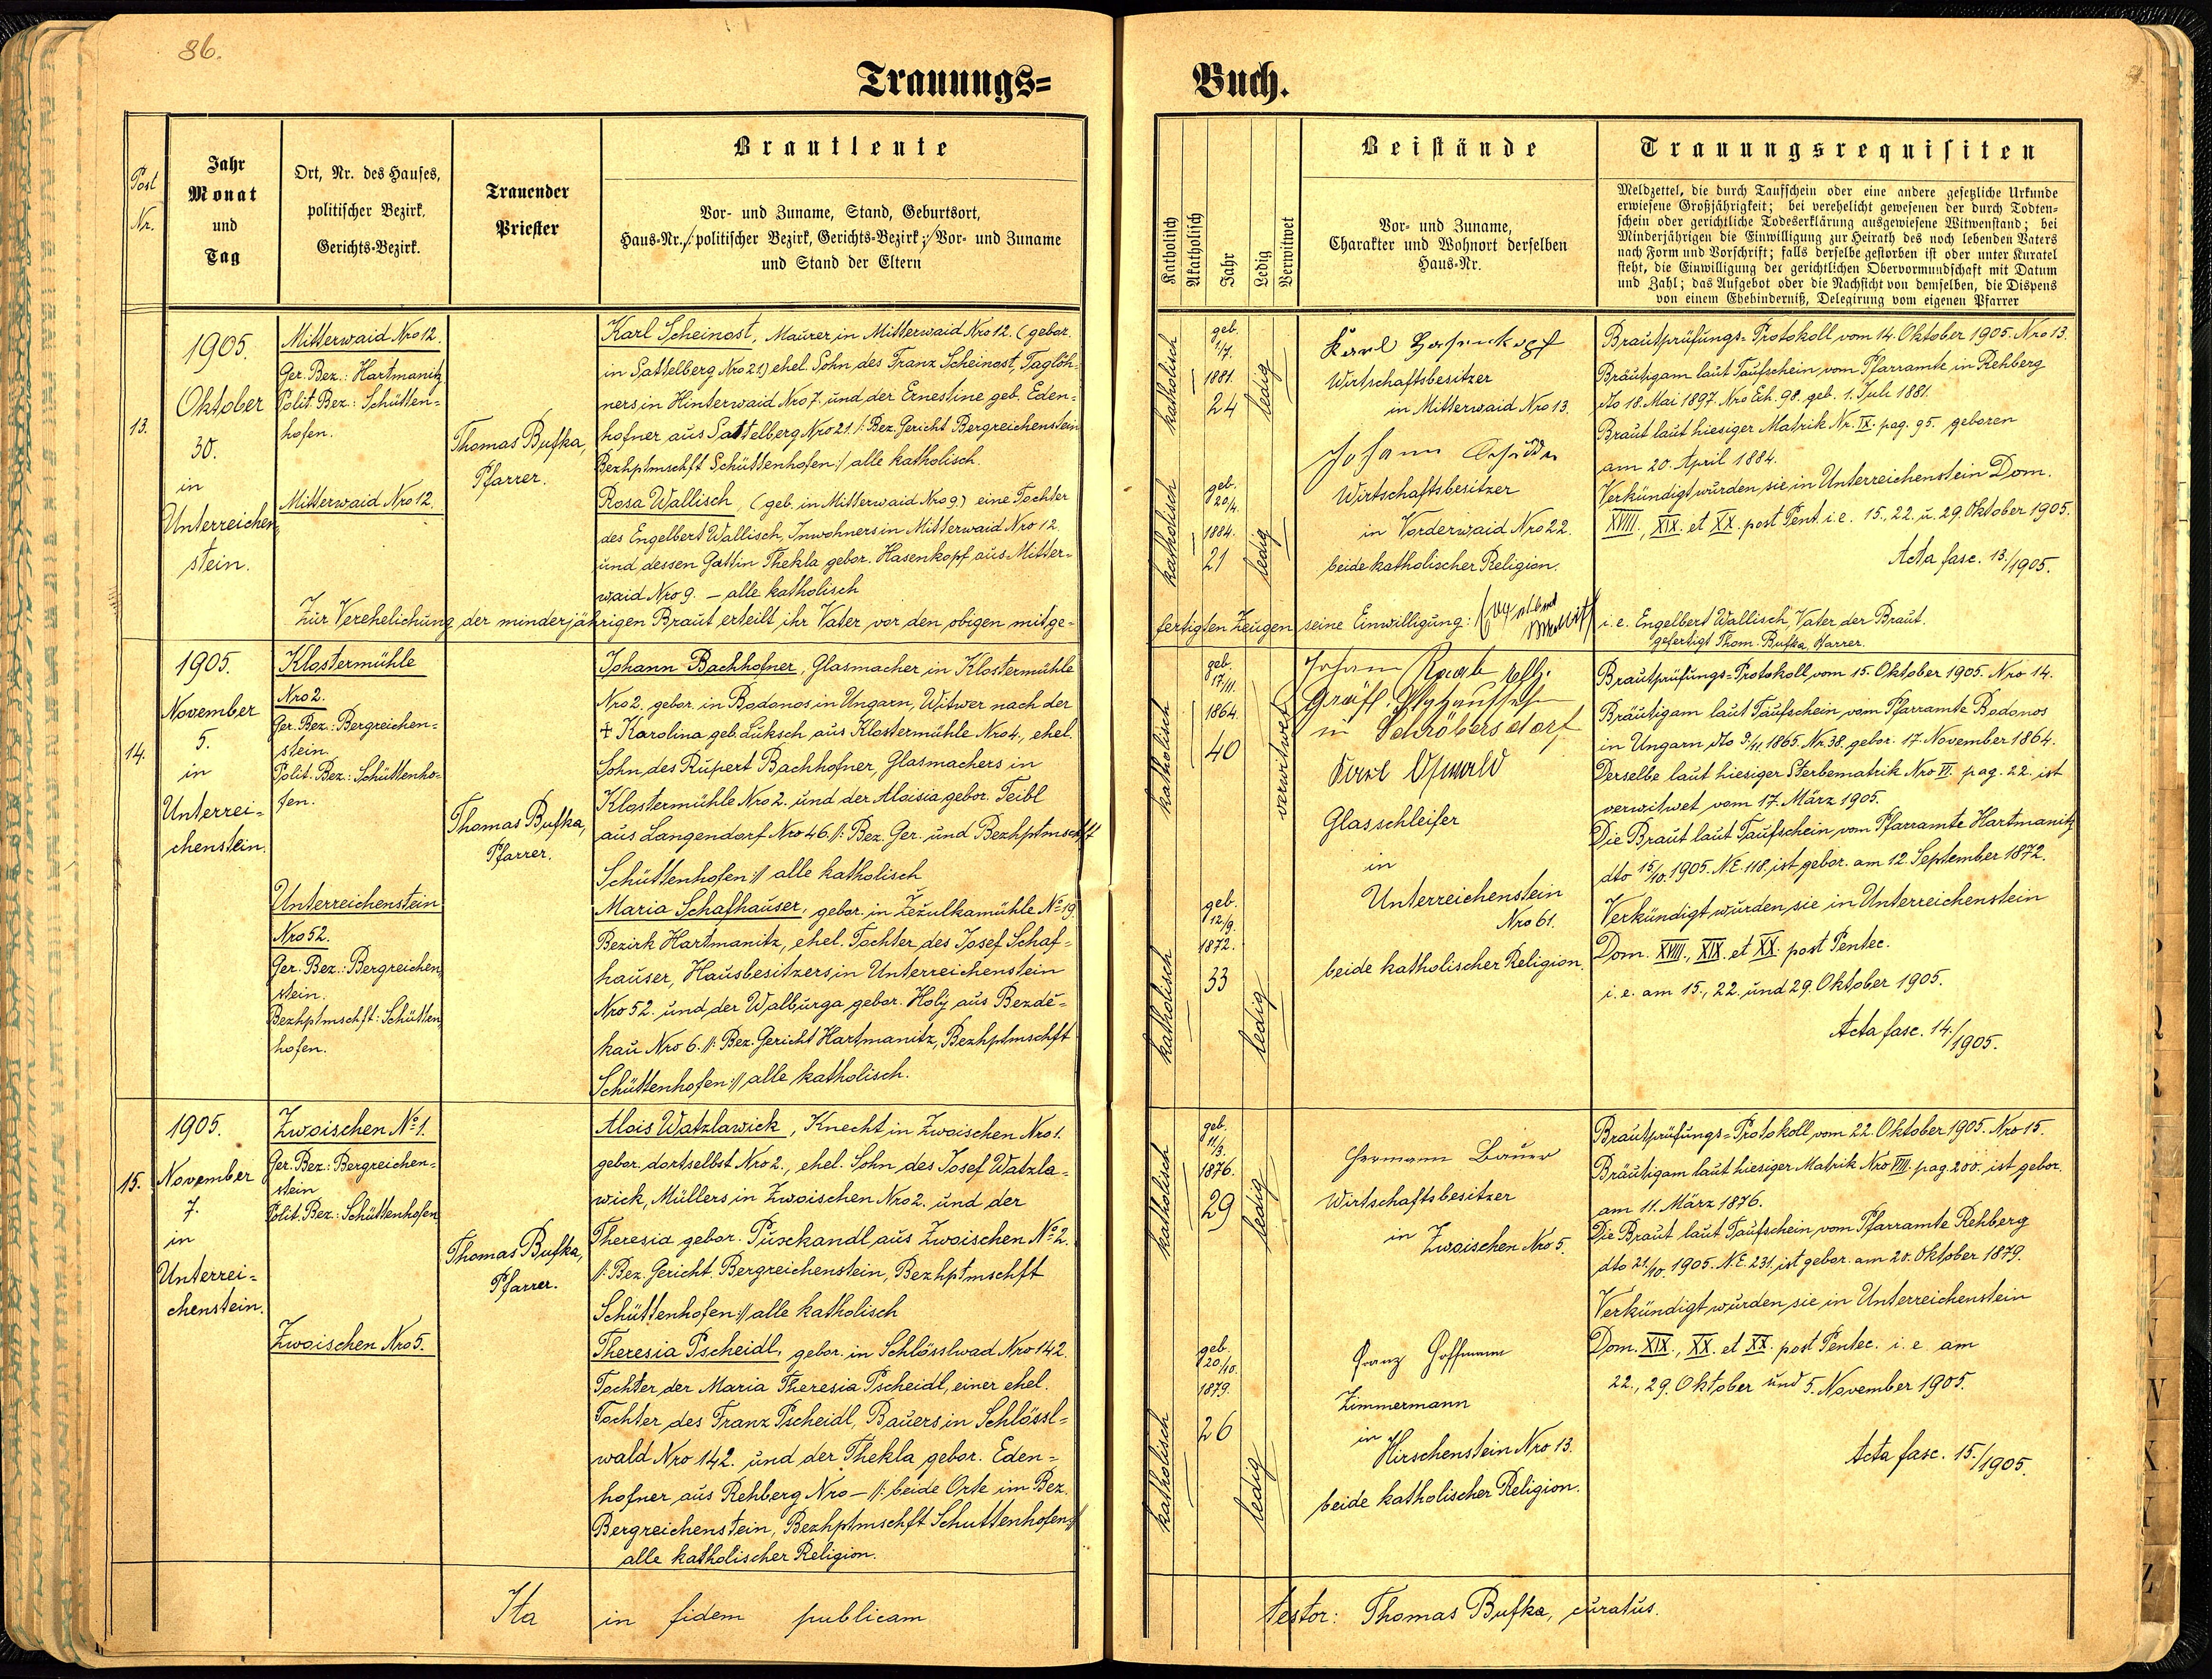 86.
Trauungs=
Buch.
Post
Nr.
Jahr
Monat
und
Tag
Ort, Nr. des Hauses,
politischer Bezirk,
Gerichts-Bezirk.
Trauender
Priester
Brautleute
Vor- und Zuname, Stand, Geburtsort,
Haus-Nr./: politischer Bezirk, Gerichts-Bezirk :/ Vor- und Zuname
und Stand der Eltern
Katholisch
Akatholisch
Jahr
Ledig
Verwitwet
Beistände
Vor- und Zuname,
Charakter und Wohnort derselben
Haus-Nr.
Trauungsrequisiten
Meldzettel, die durch Taufschein oder eine andere gesetzliche Urkunde
erwiesene Großjährigkeit; bei verehelicht gewesenen der durch Todten-
schein oder gerichtliche Todeserklärung ausgewiesene Witwenstand; bei
Minderjährigen die Einwilligung zur Heirath des noch lebenden Vaters
nach Form und Vorschrift; falls derselbe gestorben ist oder unter Kuratel
steht, die Einwilligung der gerichtlichen Obervormundschaft mit Datum
und Zahl; das Aufgebot oder die Nachsicht von demselben, die Dispens
von einem Ehehinderniß, Delegirung vom eigenen Pfarrer
13.
1905.
Oktober
30.
in
Unterreichen-
stein.
Mitterwaid Nro 12.
Ger. Bez.: Hartmanitz
Polit. Bez.: Schütten=
hofen.
Mitterwaid Nro 12.
Thomas Bufka,
Pfarrer.
Karl Scheinost, Maurer in Mitterwaid Nro 12. (gebor.
in Sattelberg Nro 21) ehel. Sohn des Franz Scheinost, Taglöh-
ners in Hinterwaid Nro 7. und der Ernestine geb. Eden=
hofner aus Sattelberg Nro 21. /: Bez. Gericht Bergreichenstein
Bezhptmschft Schüttenhofen :/ alle katholisch.
Rosa Wallisch, (geb. in Mitterwaid Nro 9.) eine Tochter
des Engelbert Wallisch, Inwohners in Mitterwaid Nro 12.
und dessen Gattin Thekla gebor. Hasenkopf aus Mitter=
waid Nro 9. – alle katholisch
Zur Verehelichung der minderjährigen Braut erteilt ihr Vater vor den obigen mitge=
katholisch
geb.
1/7.
1881.
24
ledig
katholisch
geb.
20/4.
1884.
21
ledig
Karl Hasenkopf
Wirtschaftsbesitzer
in Mitterwaid Nro 13.
Johann
Wirtschaftsbesitzer
in Vorderwaid Nro 22.
beide katholischer Religion.
Brautprüfungs=Protokoll vom 14. Oktober 1905. Nro 13.
Bräutigam laut Taufschein vom Pfarramte in Rehberg
dto 18. Mai 1897. Nro Exh. 98. geb. 1. Juli 1881.
Braut laut hiesiger Matrik Nr. IX. pag. 95. geboren
am 20. April 1884.
Verkündigt wurden sie in Unterreichenstein Dom.
XVIII., XIX. et XX. post Pent. i. e. 15., 22. u. 29. Oktober 1905.
Acta fasc. 13./1905.
fertigten Zeugen seine Einwilligung: Engelbert Wallisch i. e. Engelbert Wallisch, Vater der Braut.
gefertigt Thom. Bufka, Pfarrer.
14.
1905.
November
5.
in
Unterrei=
chenstein.
Klostermühle
Nro 2.
Ger. Bez.: Bergreichen=
stein.
Polit. Bez.: Schüttenho=
fen.
Unterreichenstein
Nro 52.
Ger. Bez.: Bergreichen
stein.
Bezhptmschft: Schütten
hofen.
Thomas Bufka,
Pfarrer.
Johann Bachhofner, Glasmacher in Klostermühle
Nro 2. gebor. in Bodonos in Ungarn, Witwer nach der
† Karolina geb. Luksch, aus Klostermühle Nro 4., ehel.
Sohn des Rupert Bachhofner, Glasmachers in
Klostermühle Nro 2. und der Aloisia gebor. Teibl
aus Langendorf Nro 46. /: Bez. Ger. und Bezhptmschft
Schüttenhofen :/ alle katholisch
Maria Schafhauser, gebor. in Žežulkamühle No 19.
Bezirk Hartmanitz, ehel. Tochter des Josef Schaf=
hauser, Hausbesitzers in Unterreichenstein
Nro 52. und der Walburga gebor. Holý aus Bezdě=
kau Nro 6. /: Bez. Gericht Hartmanitz, Bezhptmschft
Schüttenhofen :/ alle katholisch.
katholisch
geb.
17/11.
1864.
40
verwitwet
katholisch
geb.
12/9.
1872.
33
ledig
Johann Raab
Gräfl.
in Schröbersdorf
Karl Oswald
Glasschleifer
in
Unterreichenstein
Nro 61.
beide katholischer Religion.
Brautprüfungs=Protokoll vom 15. Oktober 1905. Nro 14.
Bräutigam laut Taufschein vom Pfarramte Bodonos
in Ungarn dto 9/11. 1865. Nr. 38. gebor. 17. November 1864.
Derselbe laut hiesiger Sterbematrik Nro VI. pag. 22. ist
verwitwet vom 17. März 1905.
Die Braut laut Taufschein vom Pfarramte Hartmanitz
dto 15/10. 1905. N.E. 118. ist gebor. am 12. September 1872.
Verkündigt wurden sie in Unterreichenstein
Dom. XVIII., XIX. et XX. post Pentec.
i. e. am 15., 22. und 29. Oktober 1905.
Acta fasc. 14./1905.
15.
1905.
November
7.
in
Unterrei=
chenstein.
Zwoischen No 1.
Ger. Bez.: Bergreichen=
stein
Polit. Bez.: Schüttenhofen
Zwoischen Nro 5.
Thomas Bufka,
Pfarrer.
Alois Watzlawick, Knecht in Zwoischen Nro 1.
gebor. dortselbst Nro 2., ehel. Sohn des Josef Watzla=
wick, Müllers in Zwoischen Nro 2. und der
Theresia gebor. Puxkandl aus Zwoischen No 2.
/: Bez. Gericht Bergreichenstein, Bezhptmschft
Schüttenhofen :/ alle katholisch
Theresia Pscheidl, gebor. in Schlösslwad Nro 142.
Tochter der Maria Theresia Pscheidl, einer ehel.
Tochter des Franz Pscheidl, Bauers in Schlössl=
wald Nro 142. und der Thekla gebor. Eden=
hofner aus Rehberg Nro – /: beide Orte im Bez.
Bergreichenstein, Bezhptmschft Schuttenhofen :/
alle katholischer Religion.
katholisch
geb.
11/3.
1876.
29
ledig
katholisch
geb.
20/10.
1879.
26
ledig
Hermann Bauer
Wirtschaftsbesitzer
in Zwoischen Nro 5.
Franz Hoffmann
Zimmermann
in
Hirschenstein Nro 13.
beide katholischer Religion.
Brautprüfungs=Protokoll vom 22. Oktober 1905. Nro 15.
Bräutigam laut hiesiger Matrik Nro VIII. pag. 200. ist gebor.
am 11. März 1876.
Die Braut laut Taufschein vom Pfarramte Rehberg
dto 21/10. 1905. N.E. 231. ist gebor. am 20. Oktober 1879.
Verkündigt wurden sie in Unterreichenstein
Dom. XIX., XX. et XX. post Pentec. i. e. am
22., 29. Oktober und 5. November 1905.
Acta fasc. 15./1905.
Ita in fidem publicam testor: Thomas Bufka, curatus.